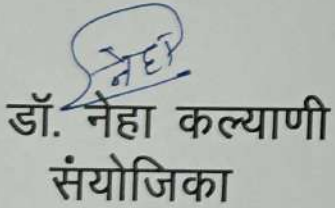 नेहा
डॉ. नेहा कल्याणी
संयोजिका